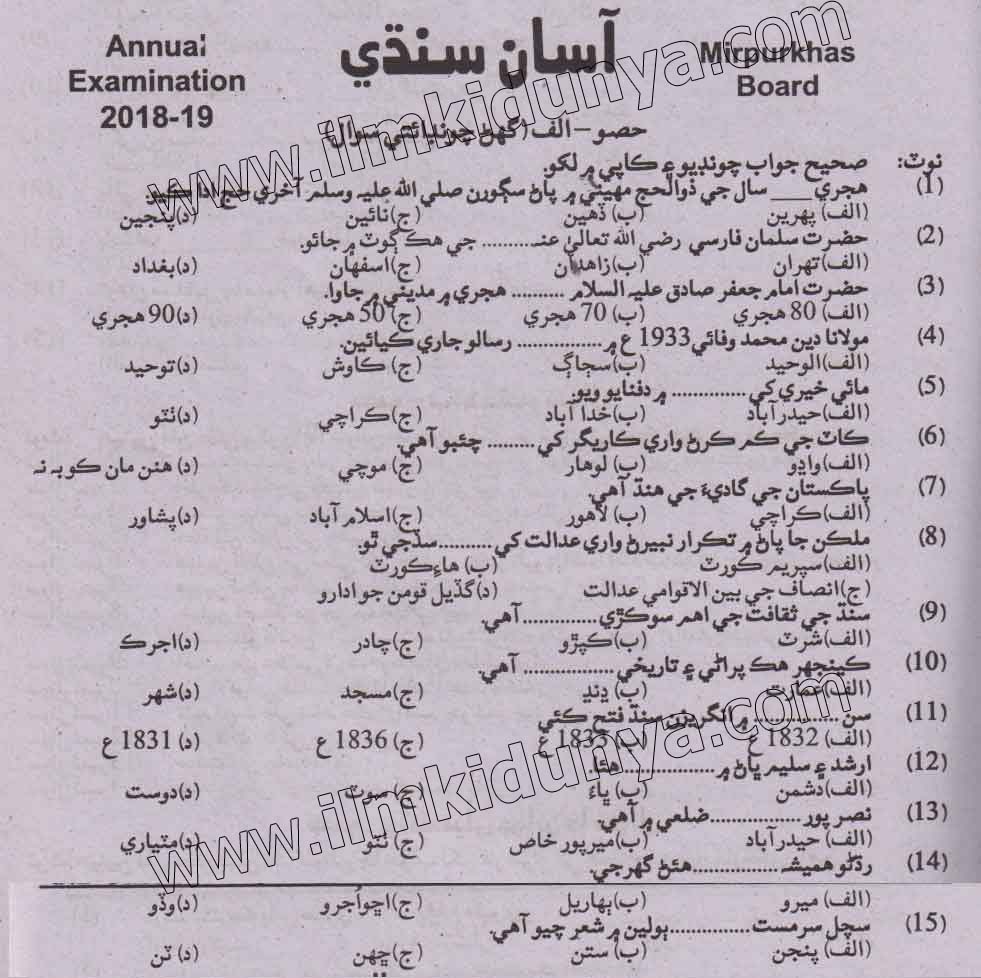 Annual
Examination
2018-19
آسان سنڌي
Mirpurkhas
Board
حصو – الف (گهڻ چونڊائتي سوال)
نوٽ: صحيح جواب چونڊيو ۽ ڪاپي ۾ لکو.
(1) هجري ____ سال جي ذوالحج مهيني ۾ پاڻ سڳورن صلي الله عليه وسلم آخري حج ادا ڪيو.
(الف) پهرين (ب) ڏهين (ج) نائين (د) پنجين
(2) حضرت سلمان فارسي رضي الله تعاليٰ عنہ.......... جي هڪ ڳوٺ ۾ ڄائو.
(الف) تهران (ب) زاهدان (ج) اسفهان (د) بغداد
(3) حضرت امام جعفر صادق عليه السلام .......... هجري ۾ مديني ۾ ڄاوا.
(الف) 80 هجري (ب) 70 هجري (ج) 50 هجري (د) 90 هجري
(4) مولانا دين محمد وفائي 1933 ع ۾ .............. رسالو جاري ڪيائين.
(الف) الوحيد (ب) سجاڳ (ج) ڪاوش (د) توحيد
(5) مائي خيري کي ............ ۾ دفنايو ويو.
(الف) حيدرآباد (ب) خدا آباد (ج) ڪراچي (د) ٺٽو
(6) ڪاٺ جي ڪم ڪرڻ واري ڪاريگر کي ........ چئبو آهي.
(الف) واڍو (ب) لوهار (ج) موچي (د) هنن مان ڪو به نہ
(7) پاڪستان جي گاديءَ جي هنڌ آهي.
(الف) ڪراچي (ب) لاهور (ج) اسلام آباد (د) پشاور
(8) ملڪن جا پاڻ ۾ تڪرار نبيرڻ واري عدالت کي ..........سڏجي ٿو.
(الف) سپريم ڪورٽ (ب) هاءِ ڪورٽ
(ج) انصاف جي بين الاقوامي عدالت (د) گڏيل قومن جو ادارو
(9) سنڌ جي ثقافت جي اهم سوکڙي ............ آهي.
(الف) شرٽ (ب) ڪپڙو (ج) چادر (د) اجرڪ
(10) ڪينجهر هڪ پراڻي ۽ تاريخي .............. آهي.
(الف) عمارت (ب) ڍنڍ (ج) مسجد (د) شهر
(11) سن .............. ۾ انگريزن سنڌ فتح ڪئي
(الف) 1832 ع (ب) 1835 ع (ج) 1836 ع (د) 1831 ع
(12) ارشد ۽ سليم پاڻ ۾ .............. هئا.
(الف) دشمن (ب) ڀاءُ (ج) سوٽ (د) دوست
(13) نصرپور ............... ضلعي ۾ آهي.
(الف) حيدرآباد (ب) ميرپور خاص (ج) ٺٽو (د) مٽياري
(14) رڌڻو هميشہ ............ هئڻ گهرجي.
(الف) ميرو (ب) ٻهاريل (ج) اڇو اُجرو (د) وڏو
(15) سچل سرمست ............ ٻولين ۾ شعر چيو آهي.
(الف) پنجن (ب) ستن (ج) ڇهن (د) ٽن
www.ilmkidunya.com
www.ilmkidunya.com